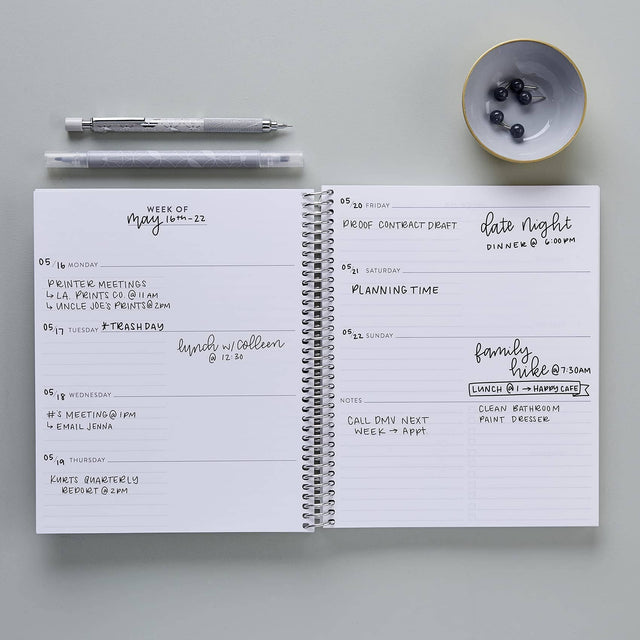 WEEK OF
May 16th-22
05/16 MONDAY
PRINTER MEETINGS
↳ L.A. PRINTS CO. @ 11 AM
↳ UNCLE JOE'S PRINTS @ 2PM
05/17 TUESDAY *TRASH DAY
lunch w/ COLLEEN
@ 12:30
05/18 WEDNESDAY
#'S MEETING @ 1PM
↳ EMAIL JENNA
05/19 THURSDAY
KURTS QUARTERLY
REPORT @ 2PM
05/20 FRIDAY
PROOF CONTRACT DRAFT
date night
DINNER @ 6:00PM
05/21 SATURDAY
PLANNING TIME
05/22 SUNDAY
family
hike @ 7:30AM
LUNCH @ 1 → HAPPY CAFE
NOTES
CALL DMV NEXT
WEEK → Appt.
CLEAN BATHROOM
PAINT DRESSER